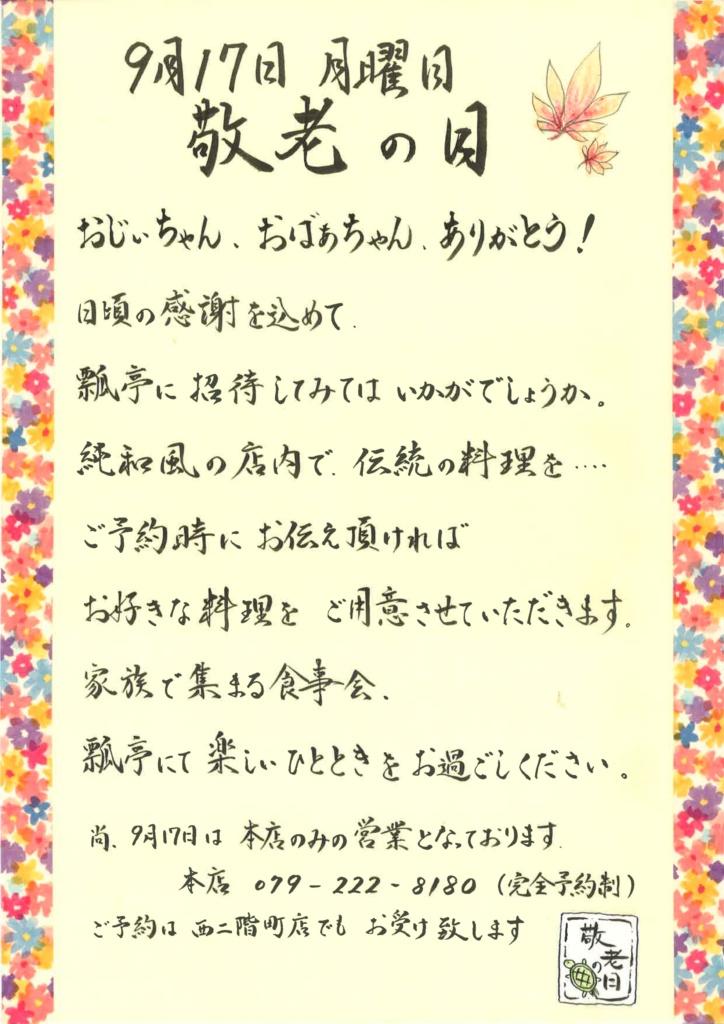 9月17日 月曜日
敬老の日
おじぃちゃん、おばぁちゃん、ありがとう!
日頃の感謝を込めて、
瓢亭に招待してみてはいかがでしょうか。
純和風の店内で、伝統の料理を‥‥
ご予約時にお伝え頂ければ
お好きな料理をご用意させていただきます。
家族で集まる食事会、
瓢亭にて楽しいひとときをお過ごしください。
尚、9月17日は本店のみの営業となっております。
本店 079-222-8180 (完全予約制)
ご予約は西二階町店でもお受け致します
敬老の日